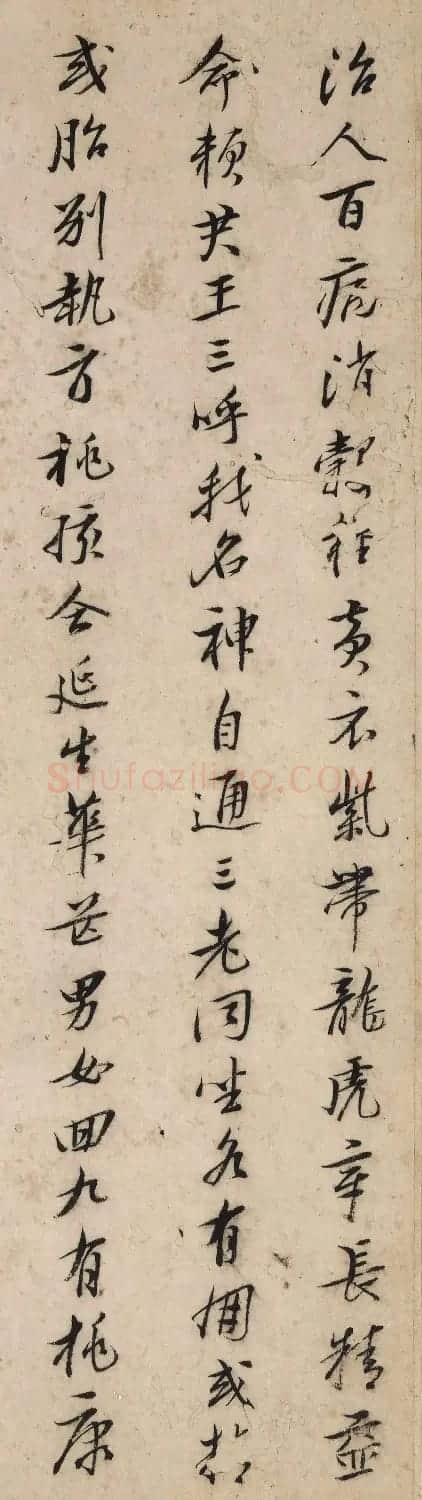 治人百病消穀粮黃衣紫帶龍虎章長精益
命賴共王三呼我名神自通三老同坐各有朋或精
或胎別執方桃孩合延生華芒男女回九有桃康
Shufaziliao.COM